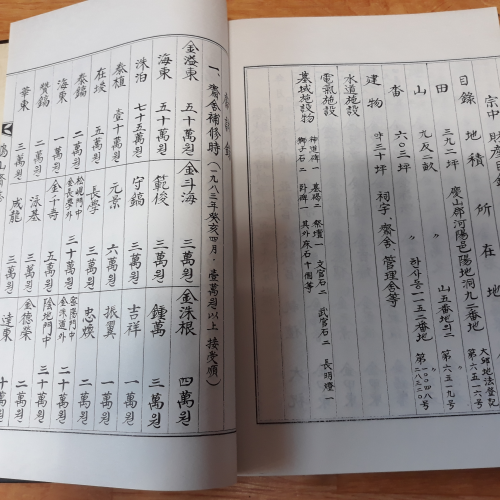 宗中財産目
目錄 地積 所在地
田 三九二坪 慶山郡河陽邑陽地洞九二番地 大邱地法登記 第六五一六号
山 九反二畝 〃 山五番地의二 第六五一九号
畓 六〇三坪 〃 한사동一一五二番地 第
建物 守三十坪 祠宇, 齋舍, 管理舍等
水道施設
電氣施設
墓域施設物 神道碑一 墓碣二 祭壇一 文官石二 武官石二 長明燈一 獅子石二 卧碑一 其外床石十個等
一、齋舍補修時 (一九八三年癸亥四月, 壹萬원以上 接受順)
金溢東 五十萬원 金斗海 三萬원 金洙根 四萬원
海東 五十萬원 範俊 三萬원 鍾萬 三萬원
洙泊 七十五萬원 守鎬 三萬원 吉祥 一萬원
泰植 壹十萬원 元景 六萬원 振翼 一萬원
在垘 五萬원 長學 三萬원 忠煥 二萬원
泰鎬 二萬원 松峴門中 金長學外 三十萬원 密陽門中 金洙道外 二十萬원
海東 一萬원 金千壽 五萬원 陰地門中 二十萬원
贊鎬 二萬원 泳基 一萬원 金德榮 二萬원
華東 三萬원 成龍 三萬원 達東 十萬원